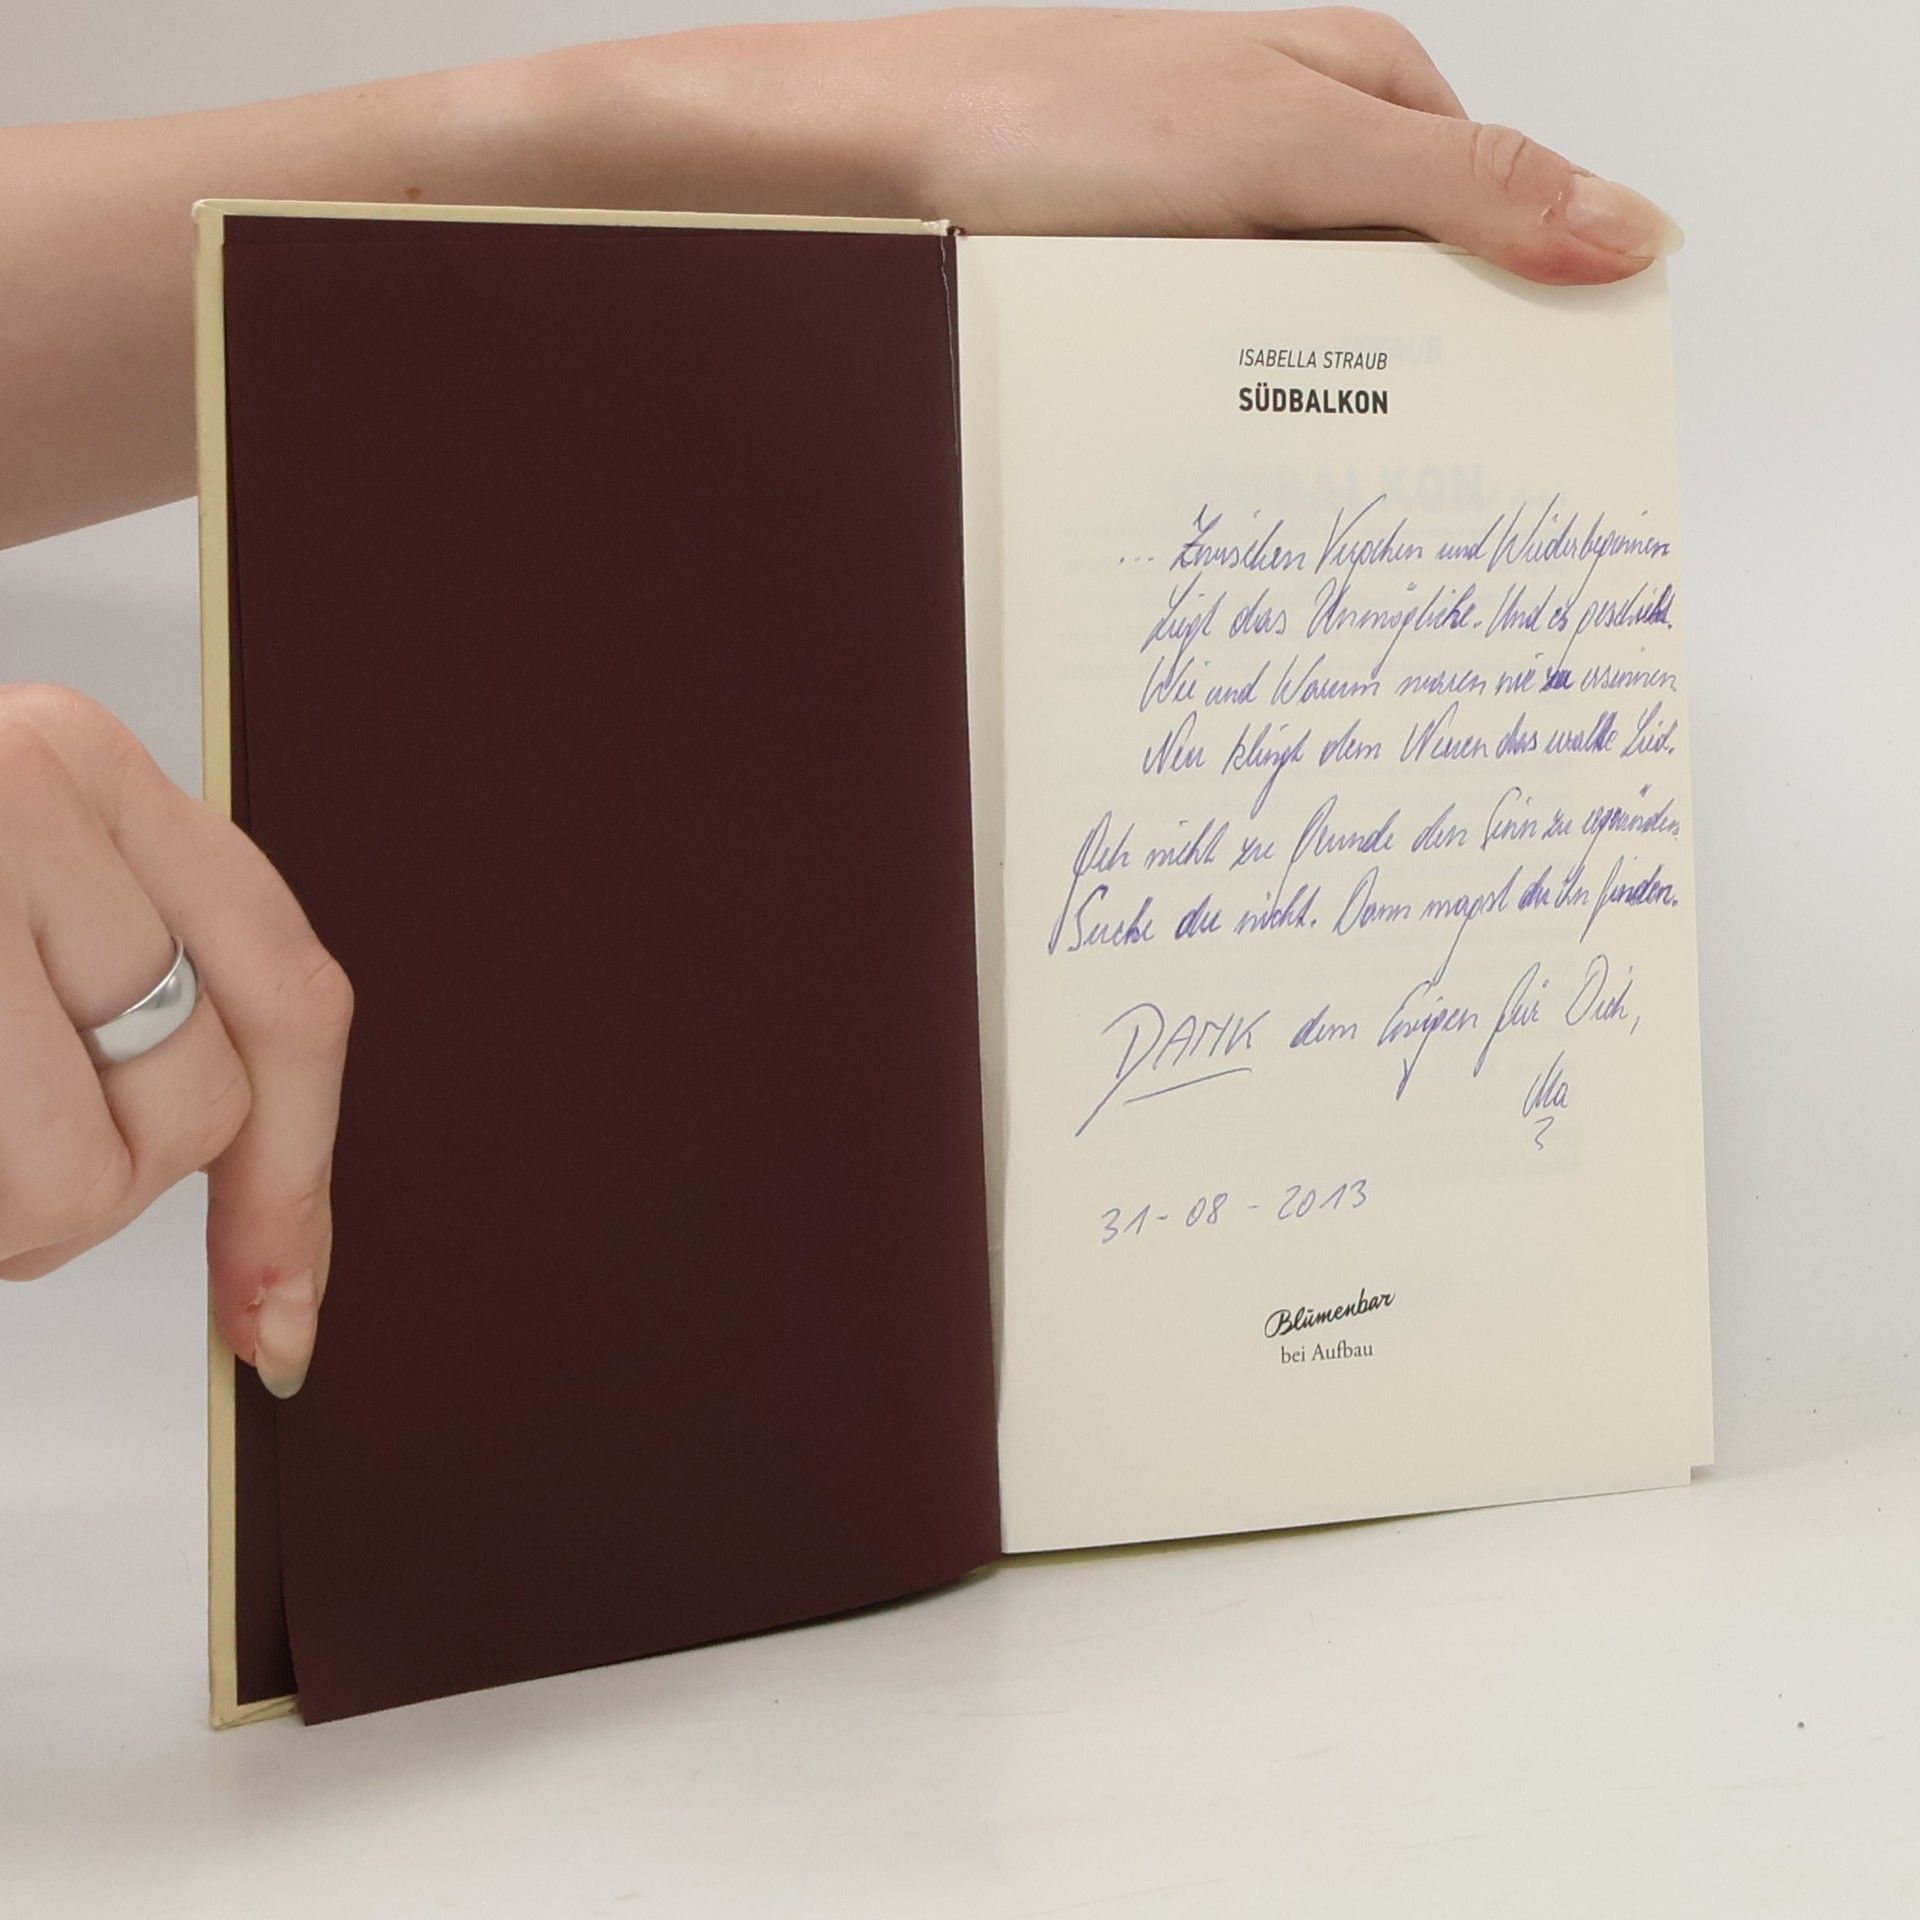 ISABELLA STRAUB
SÜDBALKON
... Zwischen Vergehen und Wiederbeginnen
Liegt das Unmögliche. Und es geschieht.
Wie und Warum waren nie zu ersinnen.
Neu klingt dem Neuen das uralte Lied.
Geh nicht zu Grunde den Sinn zu ergründen.
Suche du nicht. Dann magst du ihn finden.
DANK dem Ewigen für Dich,
Ma
31-08-2013
Blumenbar
bei Aufbau